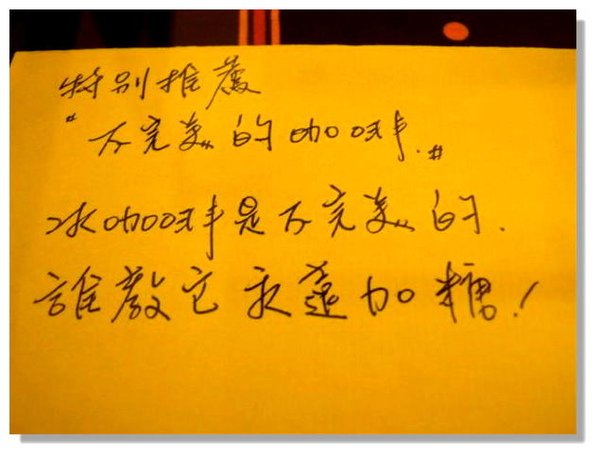 特別推薦
"不完美的咖啡."
冰咖啡是不完美的.
誰教它永遠加糖!